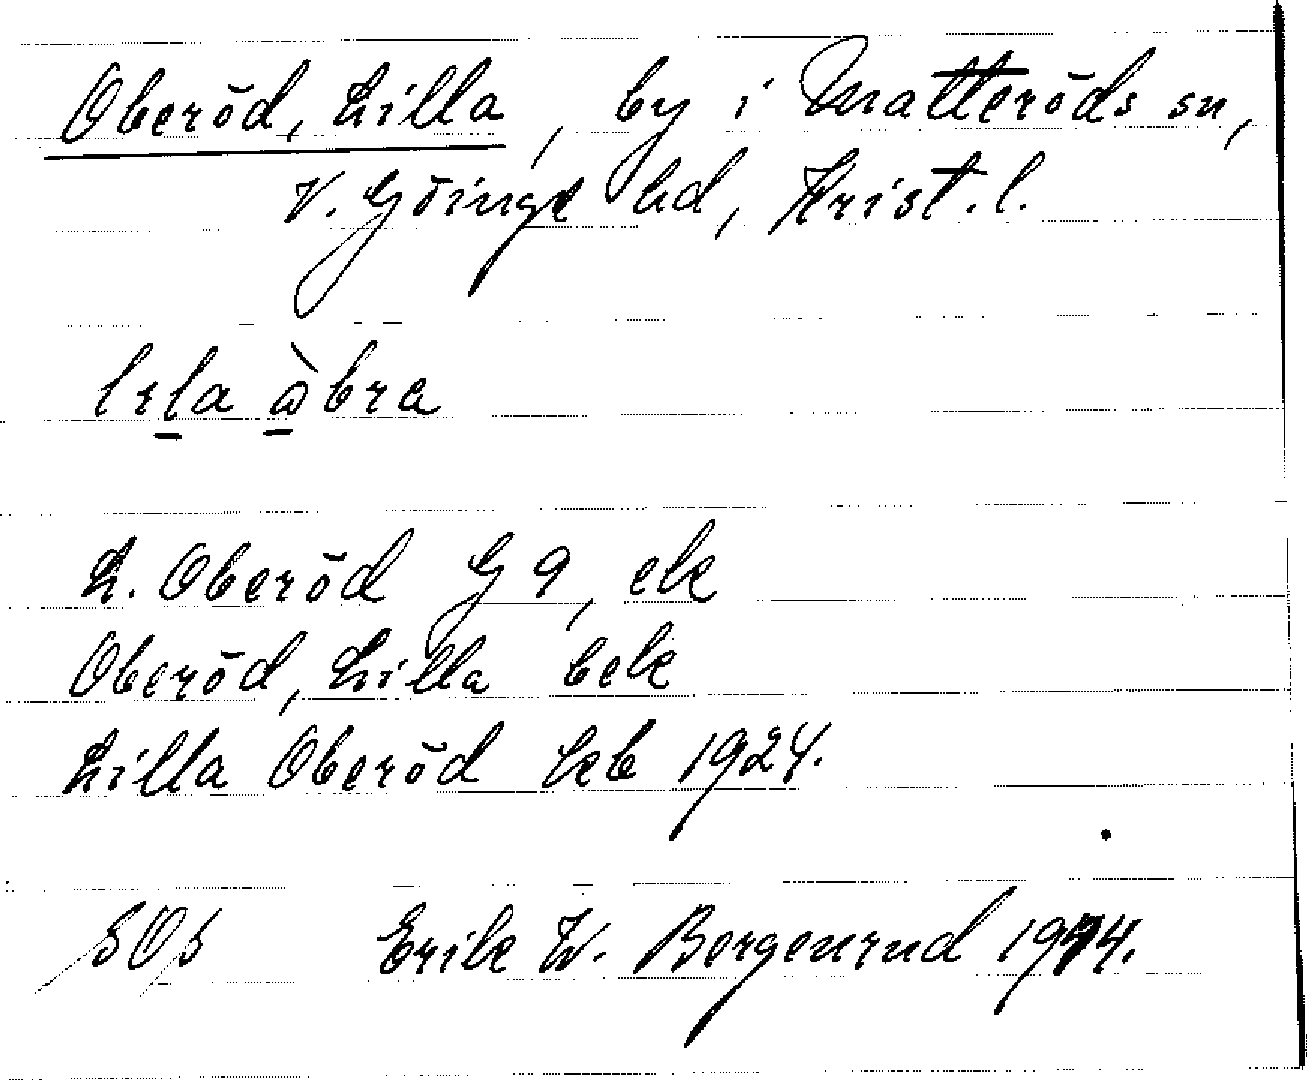 Oberöd, Lilla, by i Matteröds sn,
V. Göinge hd, Krist. l.
L. Oberöd G 9, ek
Oberöd, Lilla bek
Lilla Oberöd keb 1924.
SOS Erik W. Borgenrud